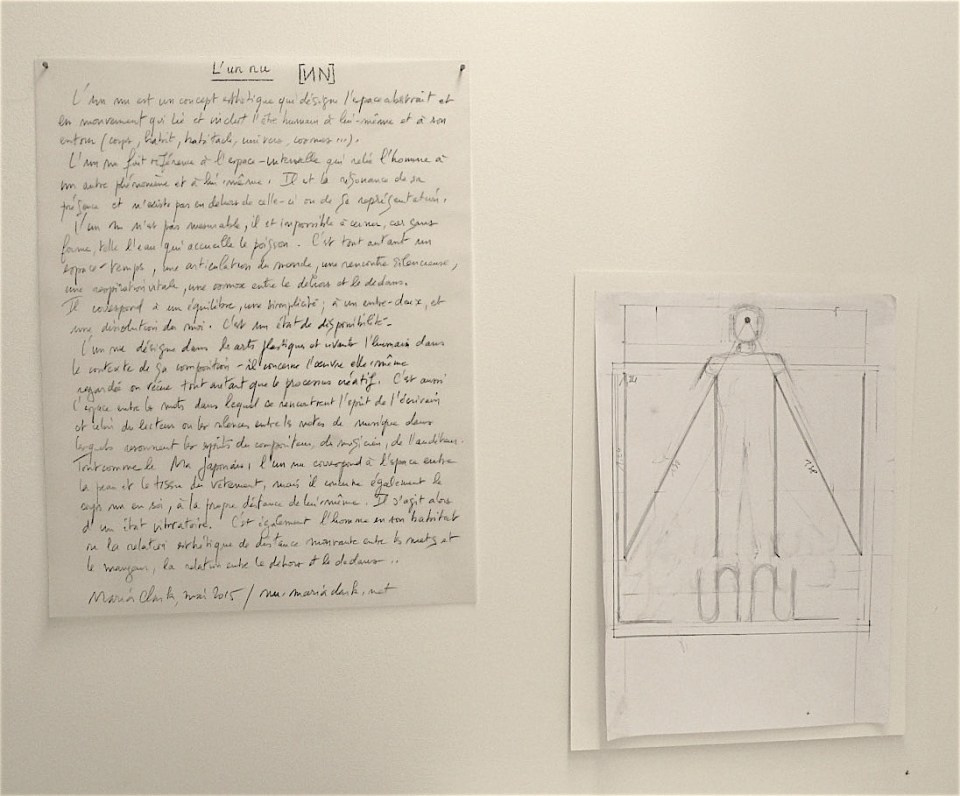 L'un nu [ИN]
L'un nu est un concept esthétique qui désigne l'espace abstrait et
en mouvement qui lie et inclut l'être humain à lui-même et à son
entour (corps, habit, habitacle, univers, cosmos ...).
L'un nu fait référence à l'espace-intervalle qui relie l'homme à
un autre phénomène et à lui-même. Il est la résonance de sa
présence et n'existe pas en dehors de celle-ci ou de sa représentation.
L'un nu n'est pas mesurable, il est impossible à cerner, car sans
forme, telle l'eau qui accueille le poisson. C'est tout autant un
espace-temps, une articulation du monde, une rencontre silencieuse,
une respiration vitale, une osmose entre le dehors et le dedans.
Il correspond à un équilibre, une simplicité, à un entre-deux, et
une dissolution du moi. C'est un état de disponibilité.
L'un nu désigne dans les arts plastiques et vivants l'humain dans
le contexte de sa composition - il concerne l'œuvre elle-même
regardée ou vécue tout autant que le processus créatif. C'est aussi
l'espace entre les mots dans lequel se rencontrent l'esprit de l'écrivain
et celui du lecteur ou les silences entre les notes de musique dans
lesquels résonnent les esprits du compositeur, du musicien, de l'auditeur.
Tout comme le Ma japonais, l'un nu correspond à l'espace entre
la peau et le tissu du vêtement, mais il concerne également le
corps nu en soi, à la propre distance de lui-même. Il s'agit alors
d'un état vibratoire. C'est également l'homme en son habitat
ou la relation esthétique de distance mouvante entre les mets et
le mangeur, la relation entre le dehors et le dedans ..
Maria Clark, mai 2015 / nu.mariaclark.net
unnu